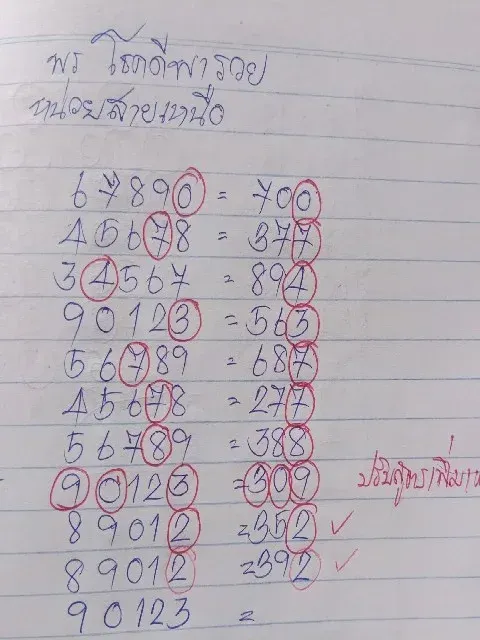 พร โชคดีพารวย
หน่วยสายเหนือ
67890 = 700
45678 = 377
34567 = 894
90123 = 563
56789 = 687
45678 = 277
56789 = 388
90123 = 309 ปรับสูตรเพิ่ม
89012 = 352 ✓
89012 = 392 ✓
90123 =